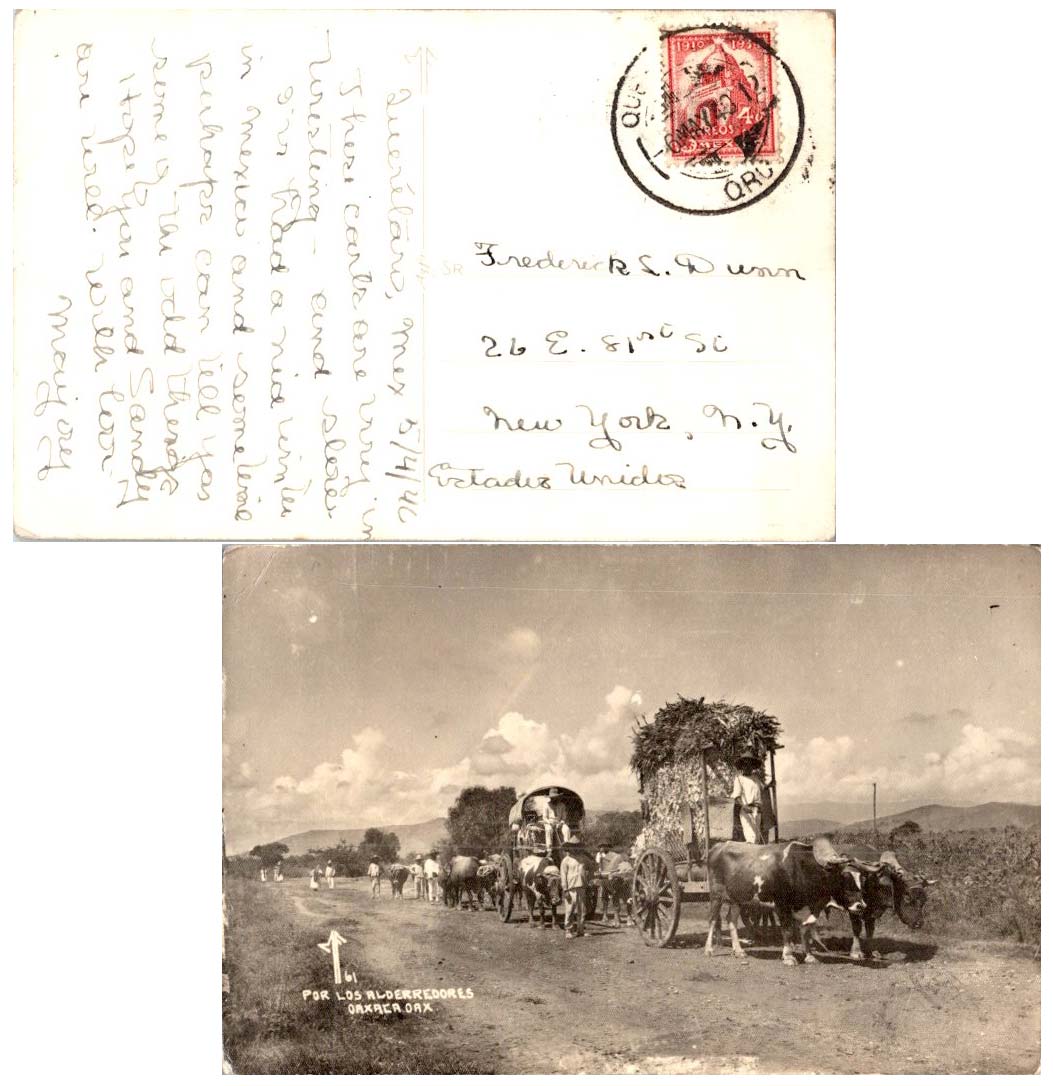 Querétaro, Mex 5/4/42
These carts are very in
teresting - and slow.
I've had a nice winter
in Mexico and some time
perhaps can tell you
some of the odd things
Hope you and Sandy
are well. With love
Marjorey
1910 193
40
CORREOS
MEXICO
QUE
MAY 42 12
QRO
SR
Frederick L. Dunn
26 E. 81st St
New York, N.Y.
Estados Unidos
61
POR LOS ALDERREDORES
OAXACA. OAX.